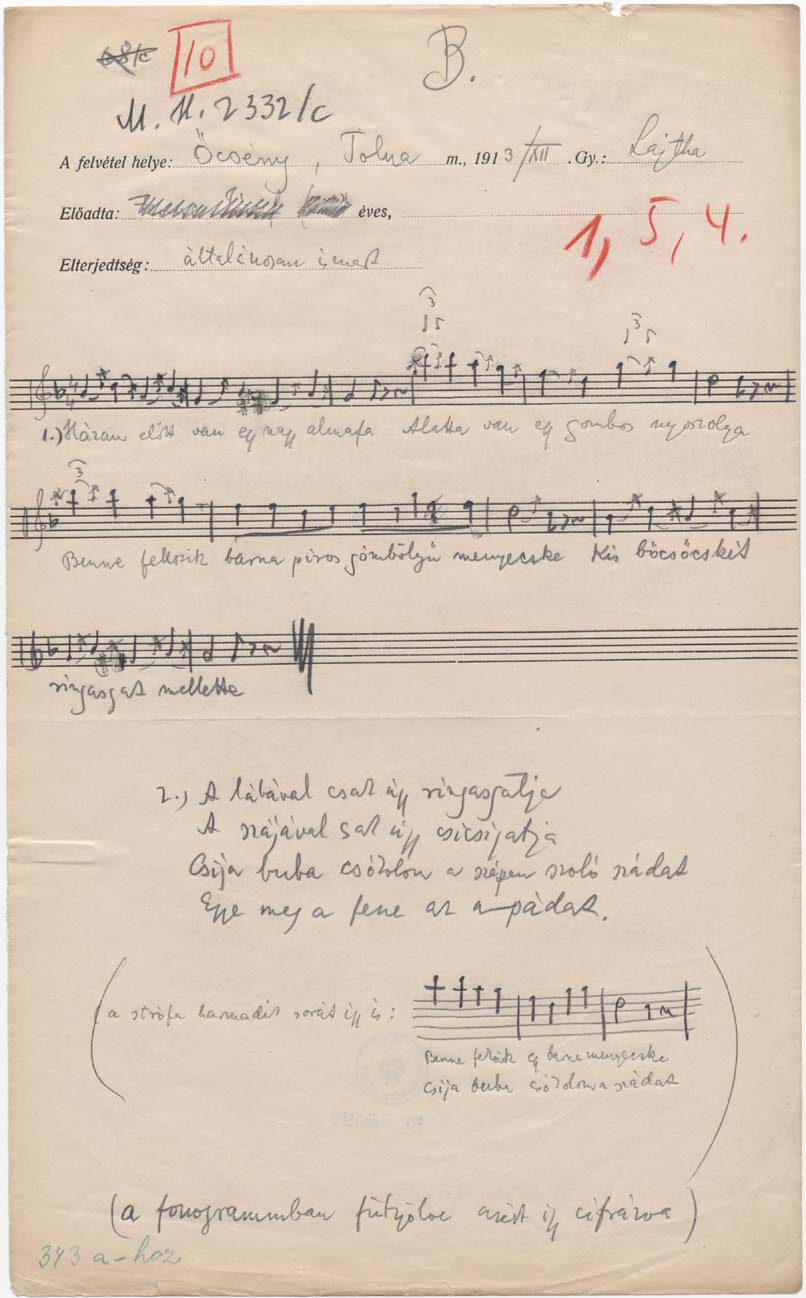 10
B.
M. H. 2332/c
A felvétel helye: Őcsény, Tolna m., 1913/XII. Gy.: Lajtha
Előadta: éves,
1, 5, 4.
Elterjedtség: általánosan ismert
3
3
1.) Házam előtt van egy nagy almafa Alatta van egy gombos nyoszolya
3
Benne fekszik barna piros gömbölyű menyecske Kis bőcsőcskét
ringasgat mellette
2.) A lábával csak úgy ringasgatja
A szájával sat úgy csicsijatja
Csija buba csókolom a szépen szoló szádat
Egye meg a fene az apádat.
(a strófa harmadik sorát így is:
Benne fekszik egy barna menyecske
Csija buba csókolom a szádat
)
(a fonogrammban fütyölve azért így cifrázva)
343 a-hoz